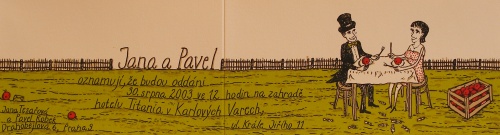 Jana a Pavel
oznamují, že budou oddáni
30. srpna 2003 ve 12 hodin na zahradě
hotelu Titania v Karlových Varech,
ul. Krále Jiřího 11
Jana
a Pavel
6, Praha 2